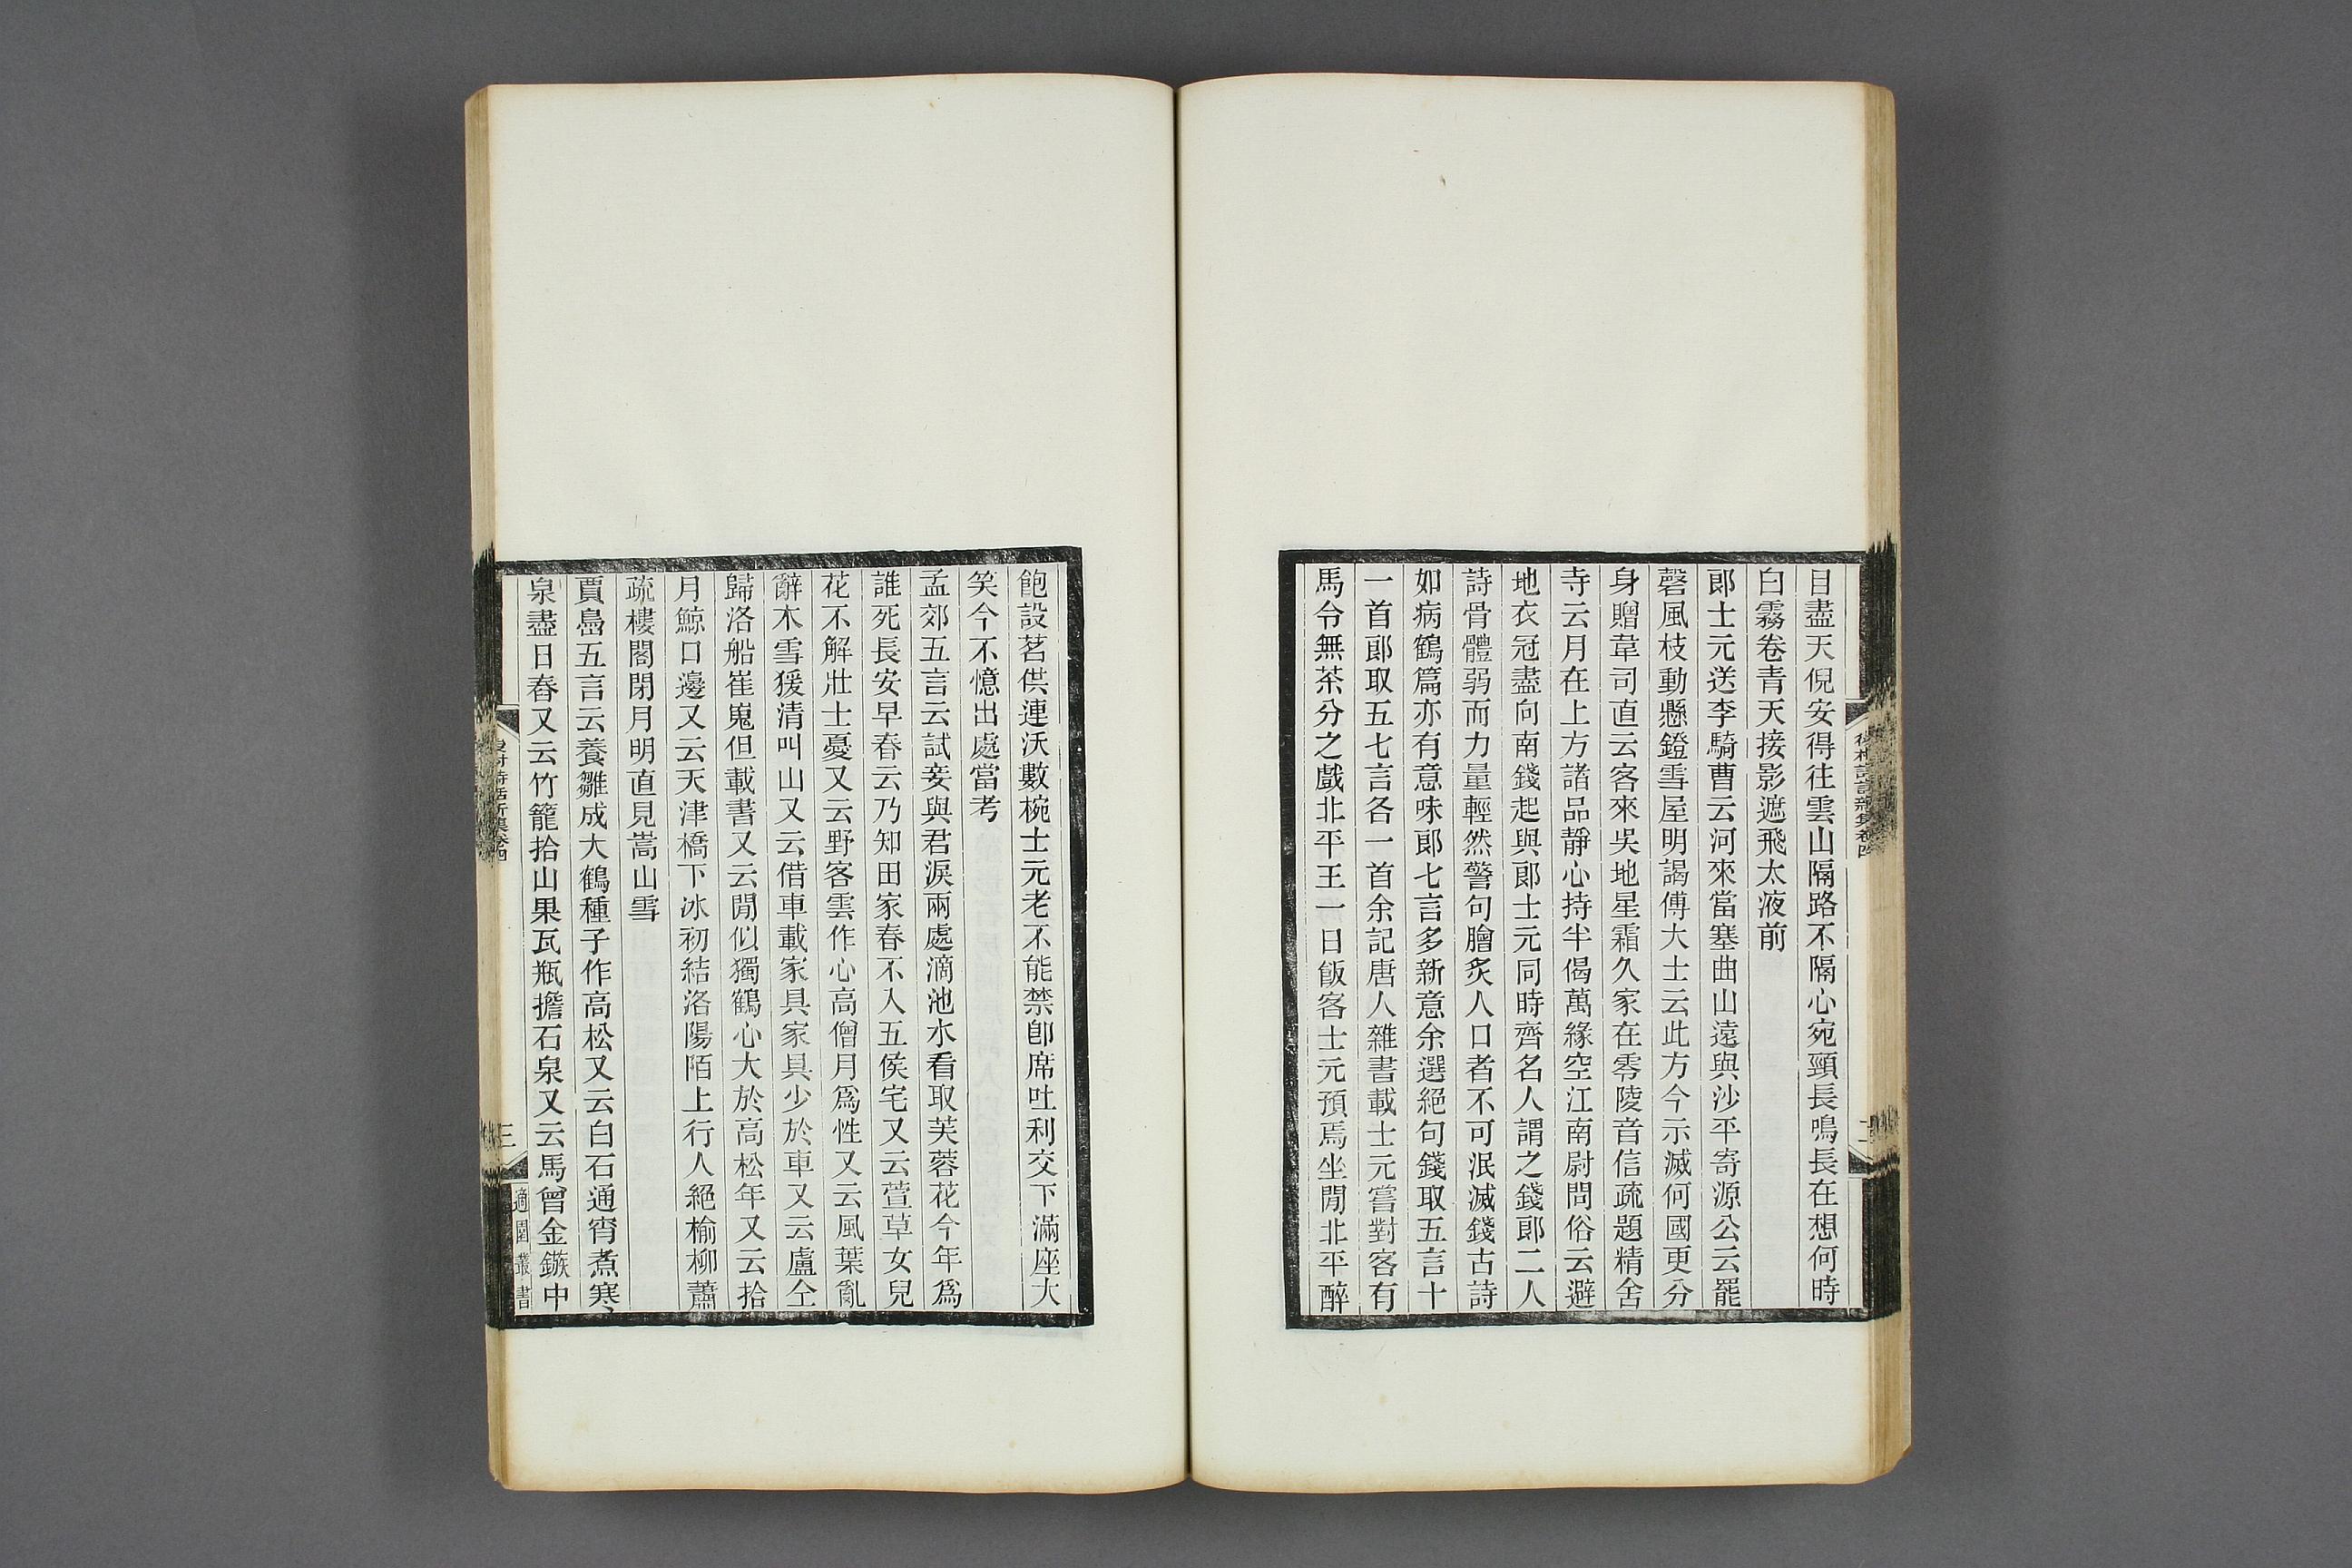 目盡天倪安得往雲山隔路不隔心宛頸長鳴長在想何時
白霧卷青天接影遮飛太液前
郎士元送李騎曹云河來當塞曲山遠與沙平寄源公云罷
磬風枝動懸鐙雪屋明謁傅大士云此方今示滅何國更分
身贈韋司直云客來吳地星霜久家在零陵音信疏題精舍
寺云月在上方諸品靜心持半偈萬緣空江南尉問俗云避
地衣冠盡向南錢起與郎士元同時齊名人謂之錢郎二人
詩骨體弱而力量輕然警句膾炙人口者不可泯滅錢古詩
如病鶴篇亦有意味郎七言多新意余選絕句錢取五言十
一首郎取五七言各一首余記唐人雜書載士元嘗對客有
馬令無茶分之戲北平王一日飯客士元預焉坐閒北平醉
飽設茗供連沃數椀士元老不能禁卽席吐利交下滿座大
笑今不憶出處當考
孟郊五言云試妾與君淚兩處滴池水看取芙蓉花今年爲
誰死長安早春云乃知田家春不入五侯宅又云萱草女兒
花不解壯士憂又云野客雲作心高僧月爲性又云風葉亂
辭木雪猨清叫山又云借車載家具家具少於車又云盧仝
歸洛船崔嵬但載書又云閒似獨鶴心大於高松年又云拾
月鯨口邊又云天津橋下冰初結洛陽陌上行人絕榆柳蕭
疏樓閣閉月明直見嵩山雪
賈島五言云養雛成大鶴種子作高松又云白石通宵煮寒
泉盡日舂又云竹籠拾山果瓦瓶擔石泉又云馬曾金鏃中
三
適園叢書